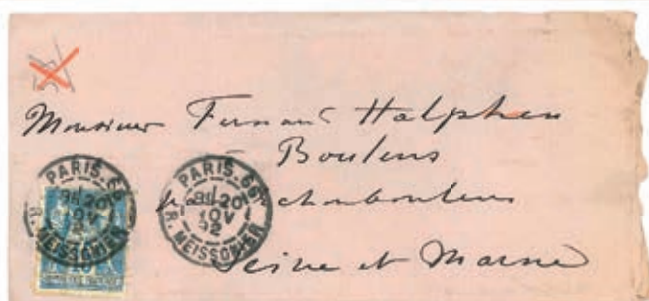 Monsieur Fernand Halphen
à Boulens
par chonboulens
Seine et Marne
PARIS.66
8E 20
NOV
92
R. MEISSONIER
PARIS.66
8E 20
NOV
92
R. MEISSONIER